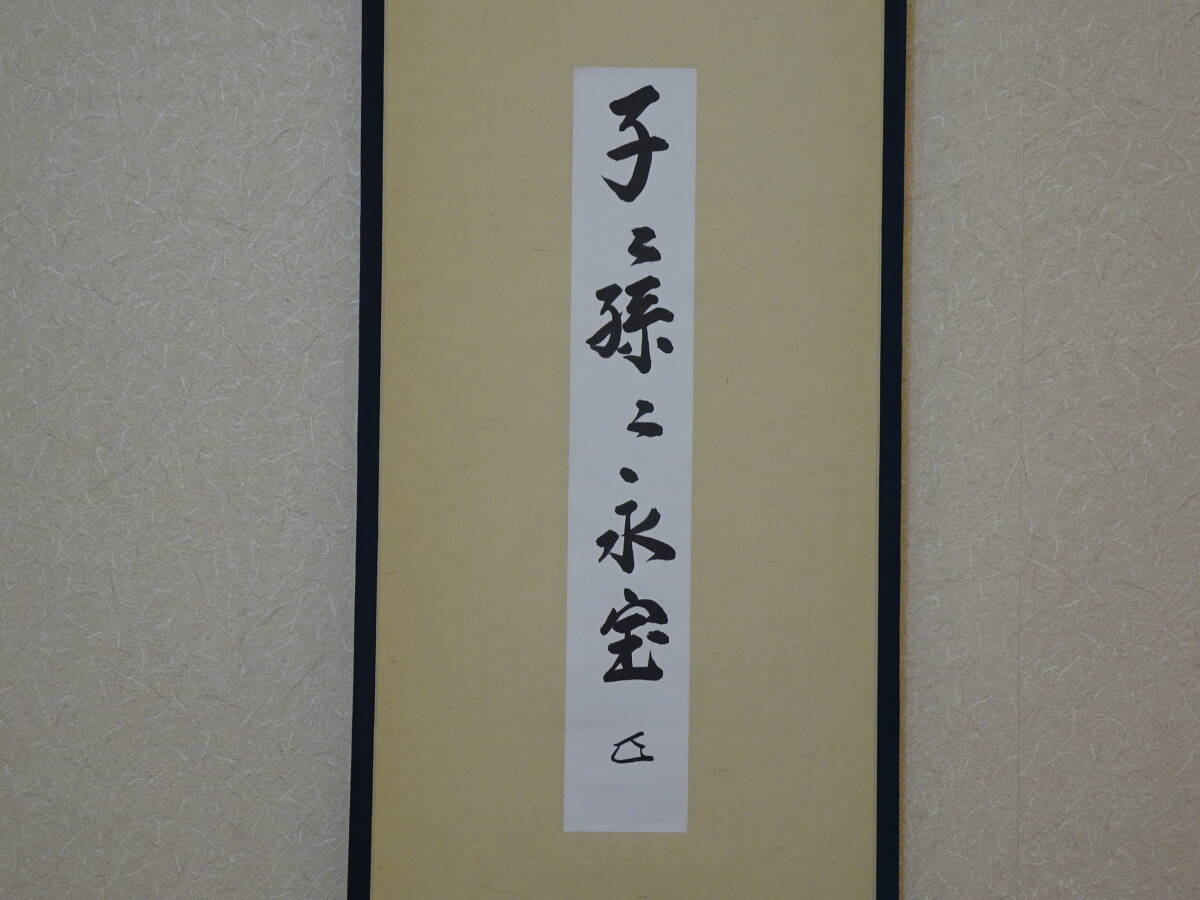 子々孫々永宝